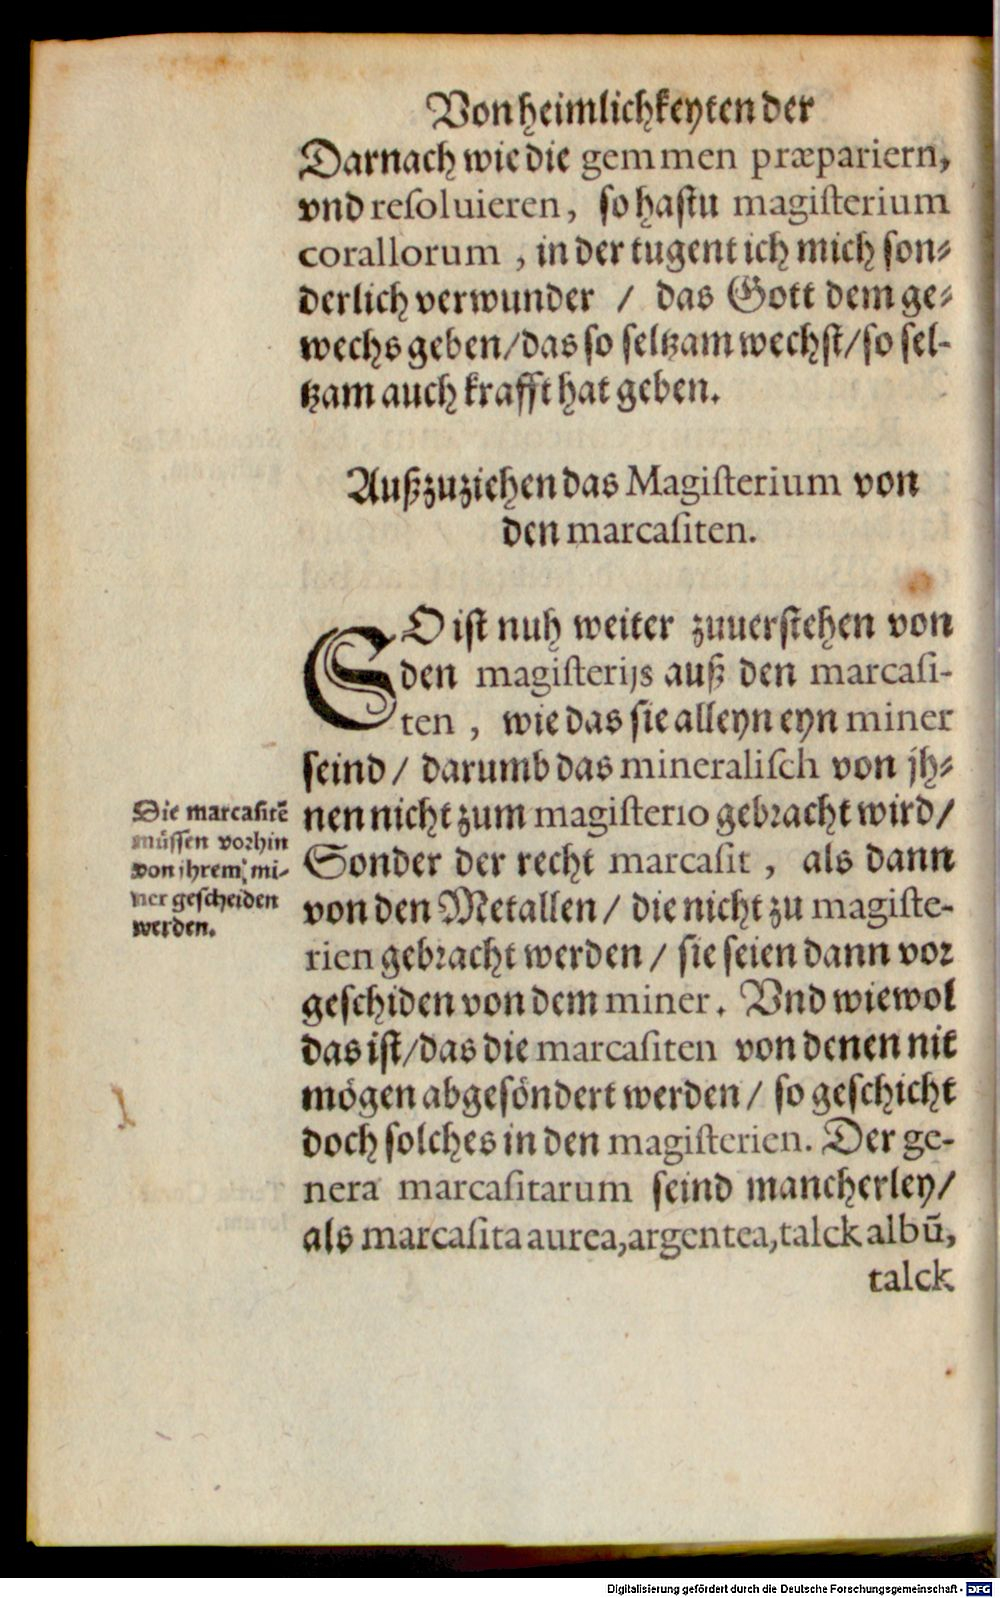 Von heimlichkeyten der
Darnach wie die gemmen præpariern,
vnd resoluieren, so hastu magisterium
corallorum, in der tugent ich mich son⸗
derlich verwunder / das Gott dem ge⸗
wechs geben/das so seltzam wechst/so sel-
tzam auch krafft hat geben.
Außzuziehen das Magisterium von
den marcasiten.
SO ist nuh weiter zuuerstehen von
den magisterijs auß den marcasi-
ten, wie das sie alleyn eyn miner
seind / darumb das mineralisch von jh⸗
nen nicht zum magisterio gebracht wird/
Sonder der recht marcasit, als dann
von den Metallen / die nicht zu magiste-
rien gebracht werden / sie seien dann vor
geschiden von dem miner. Vnd wiewol
das ist/das die marcasiten von denen nit
mögen abgesöndert werden / so geschicht
doch solches in den magisterien. Der ge-
nera marcasitarum seind mancherley/
als marcasita aurea,argentea,talck albū,
talck
Die marcasitē
müssen vorhin
von ihrem mi-
ner gescheiden
werden.
Digitalisierung gefördert durch die Deutsche Forschungsgemeinschaft - DFG